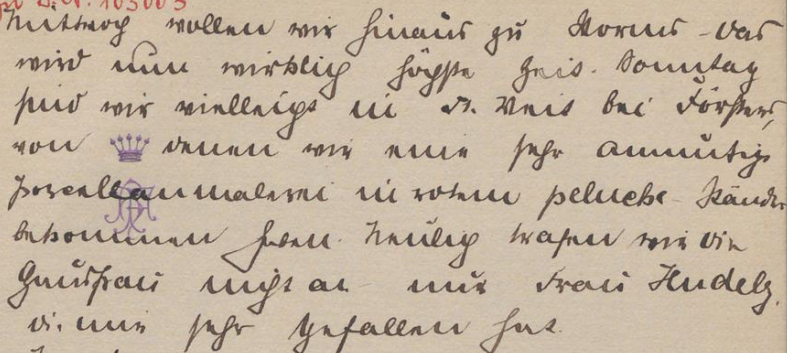 Mittwoch wollen wir hinaus zu Worms – das
wird nun wirklich höchste Zeit. Sonntag
sind wir vielleicht in St. Veit bei Försters,
von denen wir eine sehr anmutige
Porcellanmalerei in rotem peluche-Ständer
bekommen haben. Neulich trafen wir die
Hausfrau nicht an – nur Frau
die mir sehr gefallen hat.